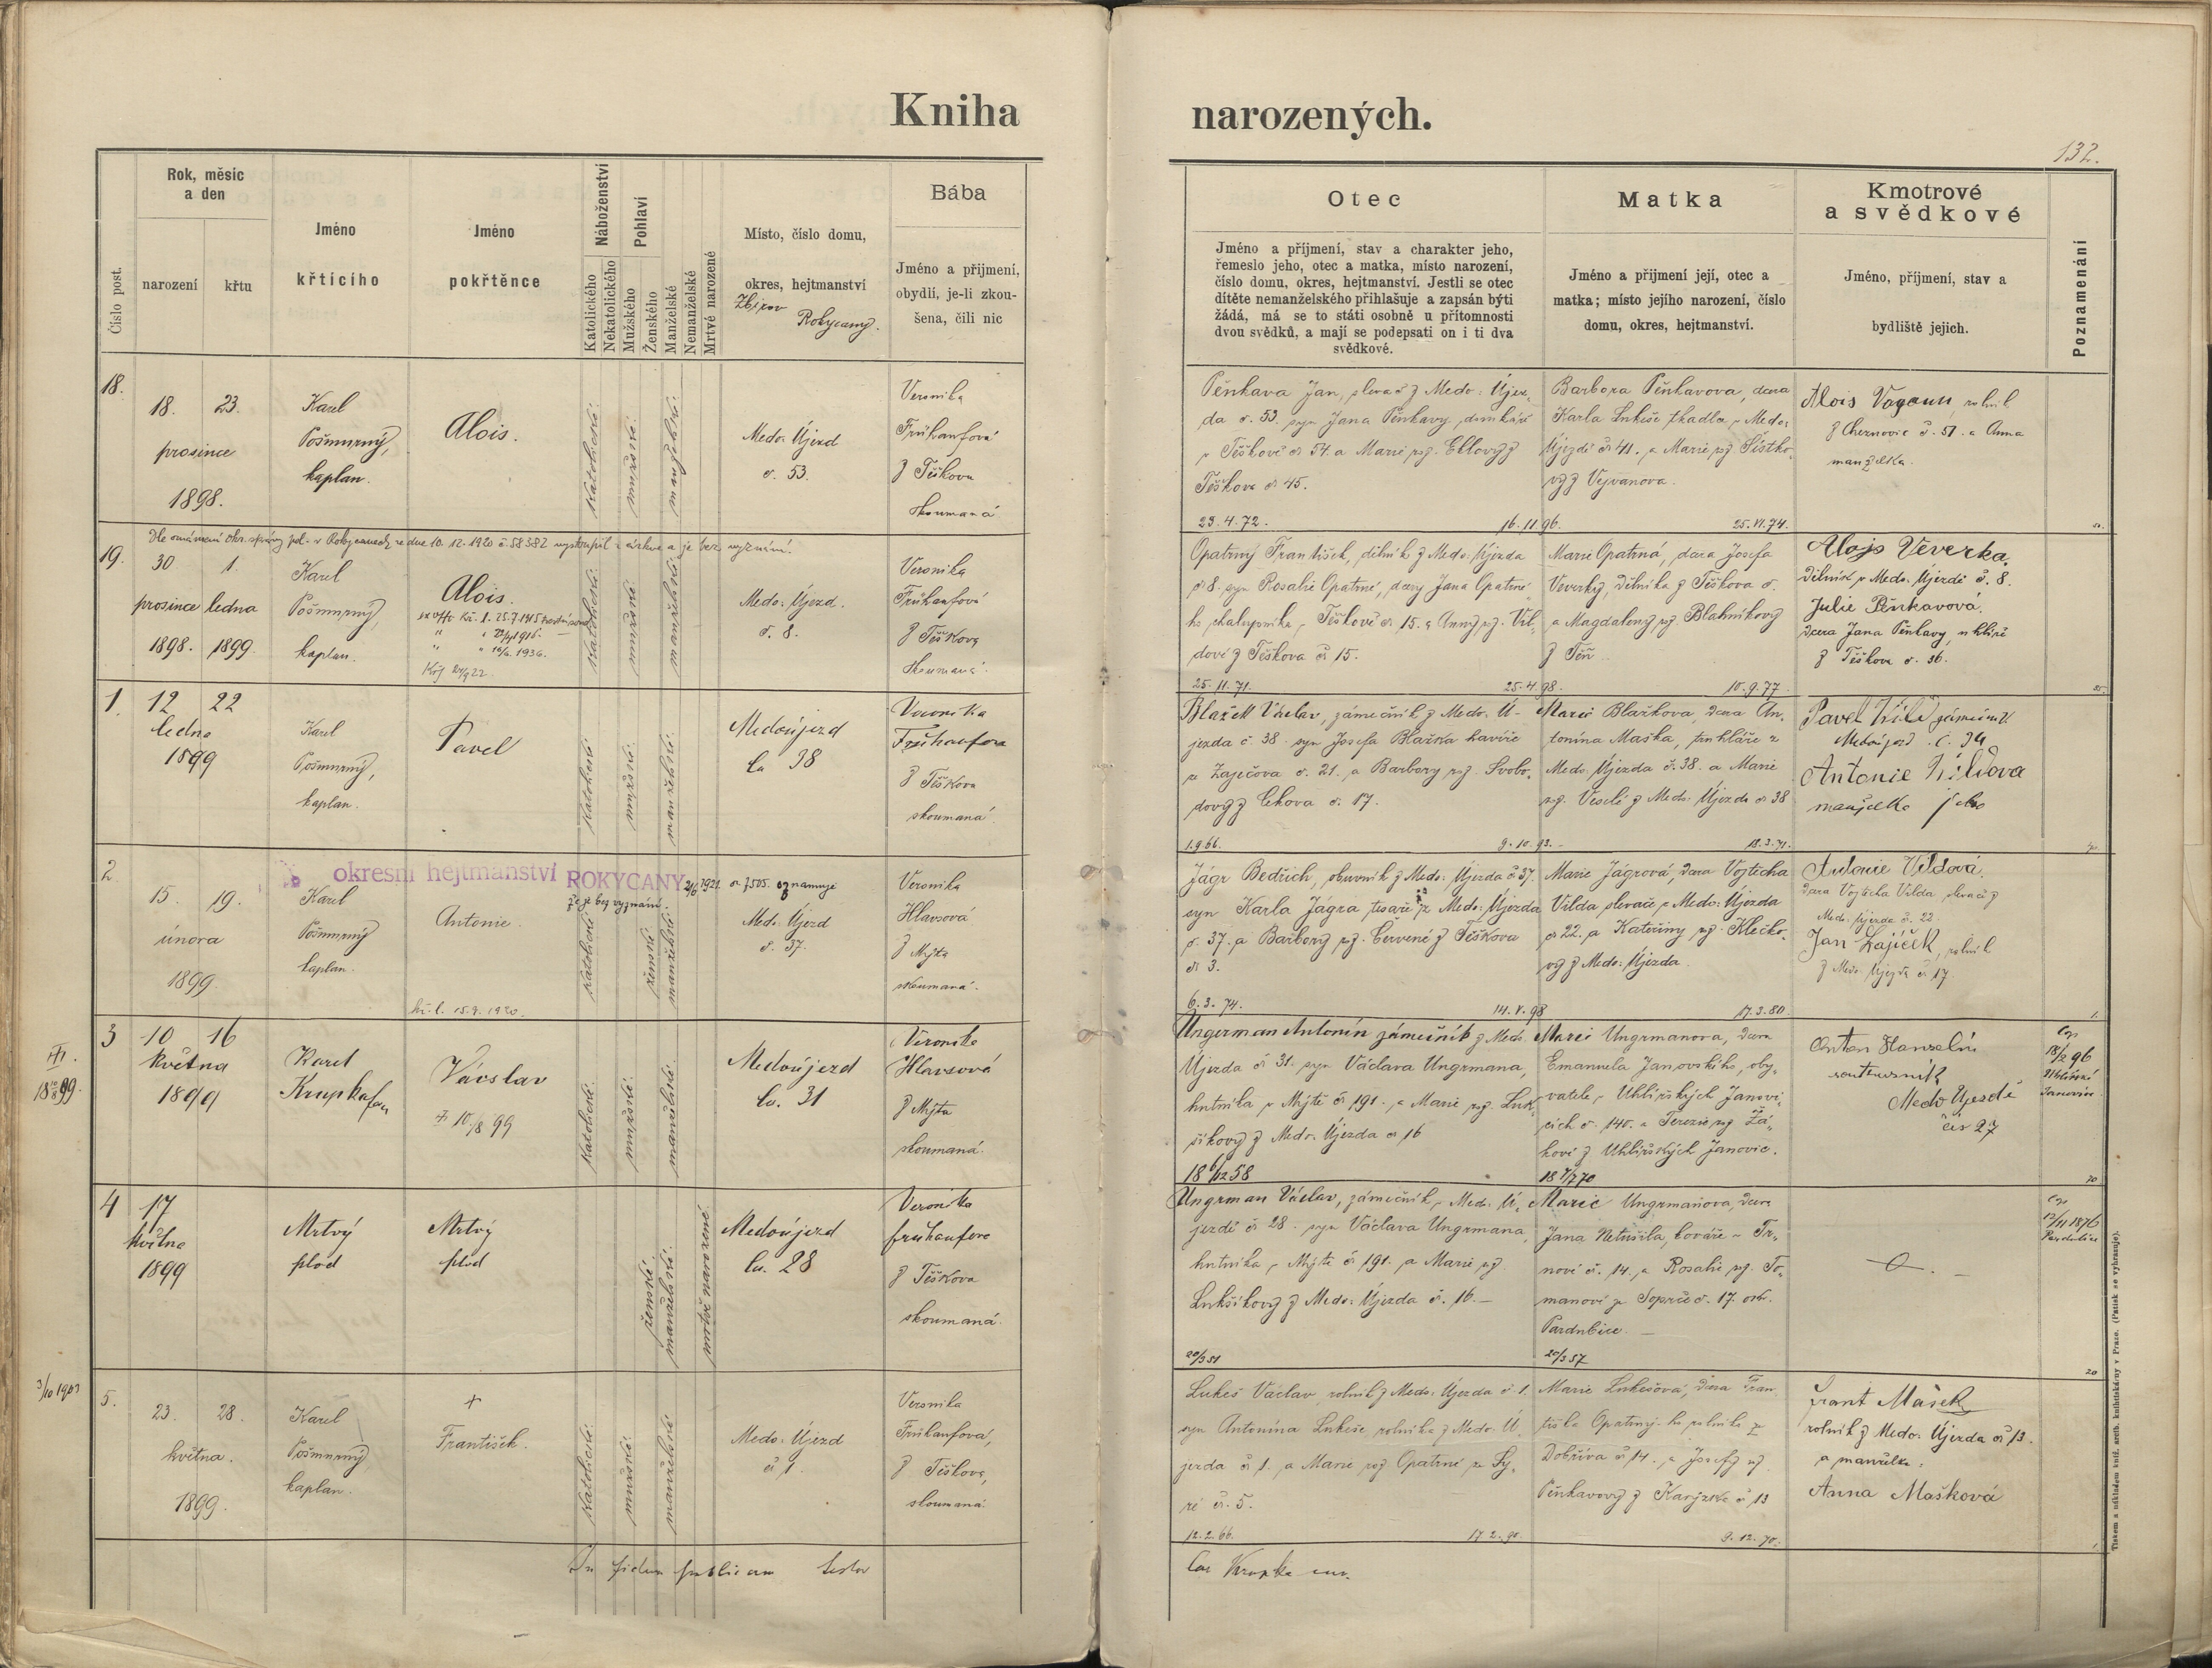 Kniha narozených.
132.
Číslo post.
Rok, měsíc
a den
narození
křtu
Jméno
křtícího
Jméno
pokřtěnce
Náboženství
Katolického
Nekatolického
Pohlaví
Mužského
Ženského
Manželské
Nemanželské
Mrtvě narozené
Místo, číslo domu,
okres, hejtmanství
Zbirov
Rokycany.
Bába
Jméno a přijmení,
obydlí, je-li zkou-
šena, čili nic
Otec
Jméno a příjmení, stav a charakter jeho,
řemeslo jeho, otec a matka, místo narození,
číslo domu, okres, hejtmanství. Jestli se otec
dítěte nemanželského přihlašuje a zapsán býti
žádá, má se to státi osobně u přítomnosti
dvou svědků, a mají se podepsati on i ti dva
svědkové.
Matka
Jméno a přijmení její, otec a
matka; místo jejího narození, číslo
domu, okres, hejtmanství.
Kmotrové
a svědkové
Jméno, příjmení, stav a
bydliště jejich.
Poznamenání
18.
18. 23.
prosince
1898.
Karel
Pošmurný,
kaplan.
Alois.
katolické
mužské
manželské
Medo: Újezd
č. 53.
Veronika
Frühaufová
z Těškova
zkoumaná
Pěnkava Jan, slevač z Medo: Újez-
da č. 53. syn Jana Pěnkavy, domkáře
v Těškově č. 54. a Marie roz. Ellovy z
Těškova č. 45.
23.4.72.
16.11.96.
Barbora Pěnkavova, dcera
Karla Lukeše tkadlce v Medo:
Újezdě č. 41. a Marie roz. Šístko-
vy z Vejvanova.
25.VI.74.
Alois Vogaun, rolník
z Cheznovic č. 51. a Anna
manželka.
19.
Dle oznámení okr. správy pol. v Rokycanech ze dne 10.12.1920 č. 58382 vystoupil z církve a je bez vyznání.
30 1.
prosince ledna
1898. 1899.
Karel
Pošmurný,
kaplan.
Alois.
katolické
mužské
manželské
Medo: Újezd.
č. 8.
Veronika
Frühaufová
z Těškova
zkoumaná.
Opatrný František, dělník z Medo: Újezda
č. 8. syn Rosalie Opatrné, dcery Jana Opatrné-
ho chalupníka v Těškově č. 15. a Anny roz. Vil-
dové z Těškova č. 15.
25.11.71.
25.4.98.
Marie Opatrná, dcera Josefa
Veverky, dělníka z Těškova č.
a Magdaleny roz. Blahníkovy
z Těň
10.9.77.
Alojs Veverka,
dělník v Medo. Újezdě č. 8.
Julie Pěnkavová,
dcera Jana Pěnkavy, uhlíře
z Těškova č. 36.
1.
12 22
ledna
1899
Karel
Pošmurný,
kaplan.
Pavel
katolické
mužské
manželské
Medoújezd
čs 38
Veronika
Frühaufova
z Těškova
zkoumaná.
Blažek Václav, zámečník z Medo: Ú-
jezda č. 38. syn Josefa Blažka havíře
z Zaječova č. 21. a Barbory roz. Svobo-
dovy z Cekova č. 17.
1.9.66.
9.10.93.
Marie Blažkova, dcera An-
tonína Maška, truhláře z
Medo: Újezda č. 38. a Marie
roz. Veselé z Medo: Újezda č. 38
18.3.71.
Pavel Vild zámečník
Medoújezd č. 34
Antonie Vildova
manželka jeho
2
okresní hejtmanství ROKYCANY
2/6 1921. č. 7505. oznamuje
že je bez vyznání.
15. 19.
února
1899
Karel
Pošmurný
kaplan.
Antonie.
15.9.1920.
katolické
ženské
manželské
Med: Újezd
č. 37.
Veronika
Hlavsová
z Mýta
zkoumaná.
Jágr Bedřich, obuvník z Medo: Újezda č. 37.
syn Karla Jágra tesaře z Medo: Újezda
č. 37. a Barbory roz. Červené z Těškova
č. 3.
6.3.74.
14.V.98
Marie Jágrová, dcera Vojtěcha
Vilda slevače z Medo: Újezda
č. 22. a Kateřiny roz. Klečko-
vy z Medo: Újezda.
17.3.80.
Antonie Vildová,
dcera Vojtěcha Vilda, slevače z
Medo: Újezda č. 22.
Jan Zajíček, rolník
z Medo: Újezda č. 17.
3
10 16
května
1899
Karel
Krupka
Václav
10/8 99
katolické
mužské
manželské
Medoújezd
čs. 31
Veronika
Hlavsová
z Mýta
zkoumaná.
Ungerman Antonín zámečník z Medo.
Újezda č. 31. syn Václava Ungrmana,
hutníka v Mýtě č. 191. a Marie roz. Luk-
šíkovy z Medo. Újezda č. 16
18 6/12 58
Marie Ungrmanova, dcera
Emanuela Janovského, oby-
vatele v Uhlířských Janovi-
cích č. 140. a Terezie roz. Žá-
kové z Uhlířských Janovic.
18 7/7 70
Anton Hanzelín
Medo Ujezdě
čís 27
18/2 96
Uhlířské
Janovice
4
17
května
1899
Mrtvý
plod
Mrtvý
plod
ženské
manželské
mrtvě narozené
Medoújezd
čs. 28
Veronika
Frühaufova
z Těškova
zkoumaná.
Ungrman Václav, zámečník v Medo. Ú-
jezdě č. 28. syn Václava Ungrmana,
hutníka v Mýtě č. 191. a Marie roz.
Lukšíkovy z Medo: Újezda č. 16. —
20/3 51
Marie Ungrmanova, dcera
Jana Netušila, kováře v Tr-
nové č. 14. a Rosalie roz. To-
manové ze Sopřče č. 17. okr.
Pardubice. —
20/3 57
12/11 1876
Pardubice
3/10 1901
5.
23. 28.
května.
1899.
Karel
Pošmurný
kaplan.
+
František.
katolické
mužské
manželské
Medo: Újezd
č. 1.
Veronika
Frühaufová,
z Těškova,
zkoumaná.
Lukeš Václav, rolník z Medo: Újezda č. 1.
syn Antonína Lukeše rolníka z Medo: Ú-
jezda č. 1. a Marie roz. Opatrné ze Sy-
ré č. 5.
12.2.66.
17.2.90.
Marie Lukešová, dcera Fran-
tiška Opatrného rolníka z
Dobříva č. 14. a Josefy roz.
Pěnkavovy z Karýzku č. 13
9.12.70.
Frant Mašek
rolník z Medo: Újezda č. 13.
a manželka:
Anna Mašková
In fidem publicam testor
Car Krupka
Tiskem a nákladem kníž. arcib. knihtiskárny v Praze. (Patisk se vyhrazuje).